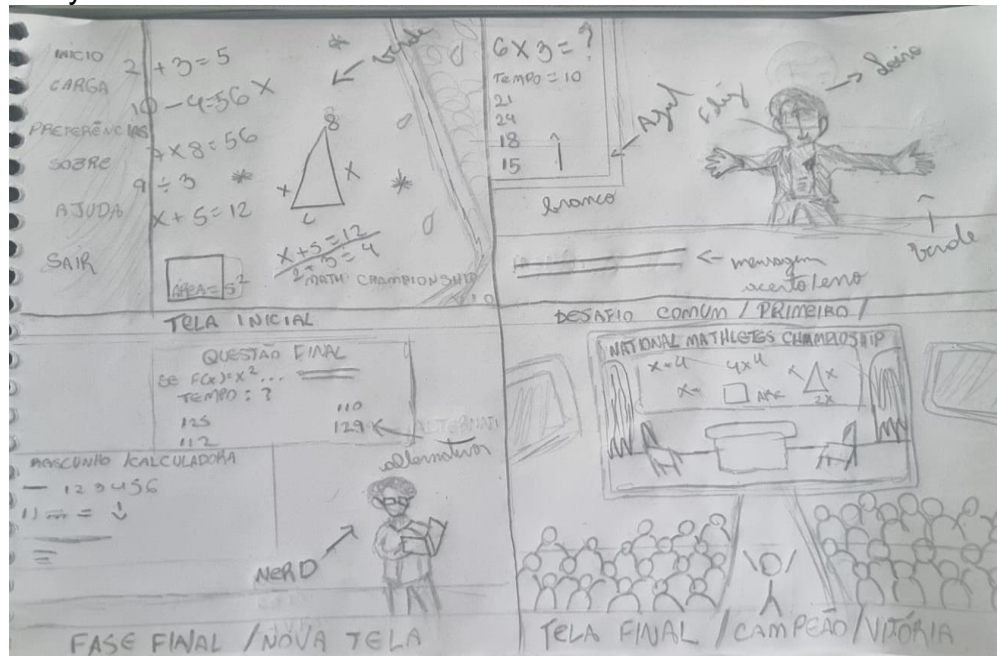 INICIO
CARGA
PREFERÊNCIAS
SOBRE
AJUDA
SAIR
2 + 3 = 5
10 - 4 = 56 X
7 x 8 = 56
9 ÷ 3
X + 5 = 12
ÁREA = 5²
verde
8
X X
L
X + 5 = 12
MATH CHAMPIONSHIP
TELA INICIAL
6 X 3 = ?
TEMPO = 10
21
24
18
15
Azul
branco
Feliz
Loiro
verde
mensagem
acerto/erro
DESAFIO COMUM / PRIMEIRO /
QUESTÃO FINAL
SE F(X) = X² ...
TEMPO : ?
125 110
112 129
alternativas
RASCUNHO / CALCULADORA
123456
NERD
FASE FINAL / NOVA TELA
NATIONAL MATHLETES CHAMPIOSHIP
X = 4 4 x 4
X =
X X
2X
TELA FINAL / CAMPEÃO / VITÓRIA